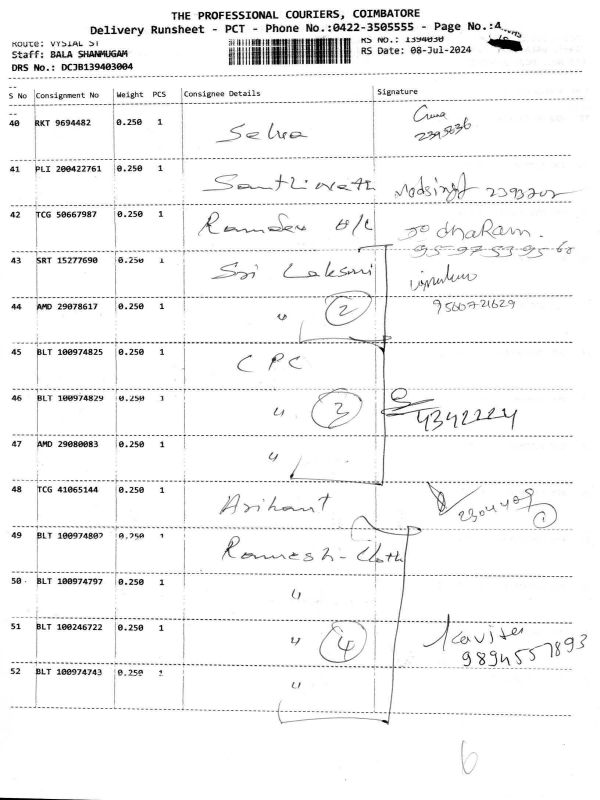 THE PROFESSIONAL COURIERS, COIMBATORE
Delivery Runsheet - PCT - Phone No.:0422-3505555 - Page No.:4
Route: VYSIAL ST RS No.: 1394030
Staff: BALA SHANMUGAM RS Date: 08-Jul-2024
DRS No.: DCJB139403004
S No Consignment No Weight PCS Consignee Details Signature
40 RKT 9694482 0.250 1 Selva
2395636
41 PLI 200422761 0.250 1 Santhinath
42 TCG 50667987 0.250 1 Ramdev
43 SRT 15277690 0.250 1 Sri Laksmi
44 AMD 29078617 0.250 1 " 2 9560721629
45 BLT 100974825 0.250 1 CPC
46 BLT 100974829 0.250 1 " 3 4342224
47 AMD 29080083 0.250 1 "
48 TCG 41065144 0.250 1 Arihant 2304409 1
49 BLT 100974802 0.250 1 Ramesh-Cloth
50 BLT 100974797 0.250 1 "
51 BLT 100246722 0.250 1 " 4 Kavitha
9894557893
52 BLT 100974743 0.250 1 "
6